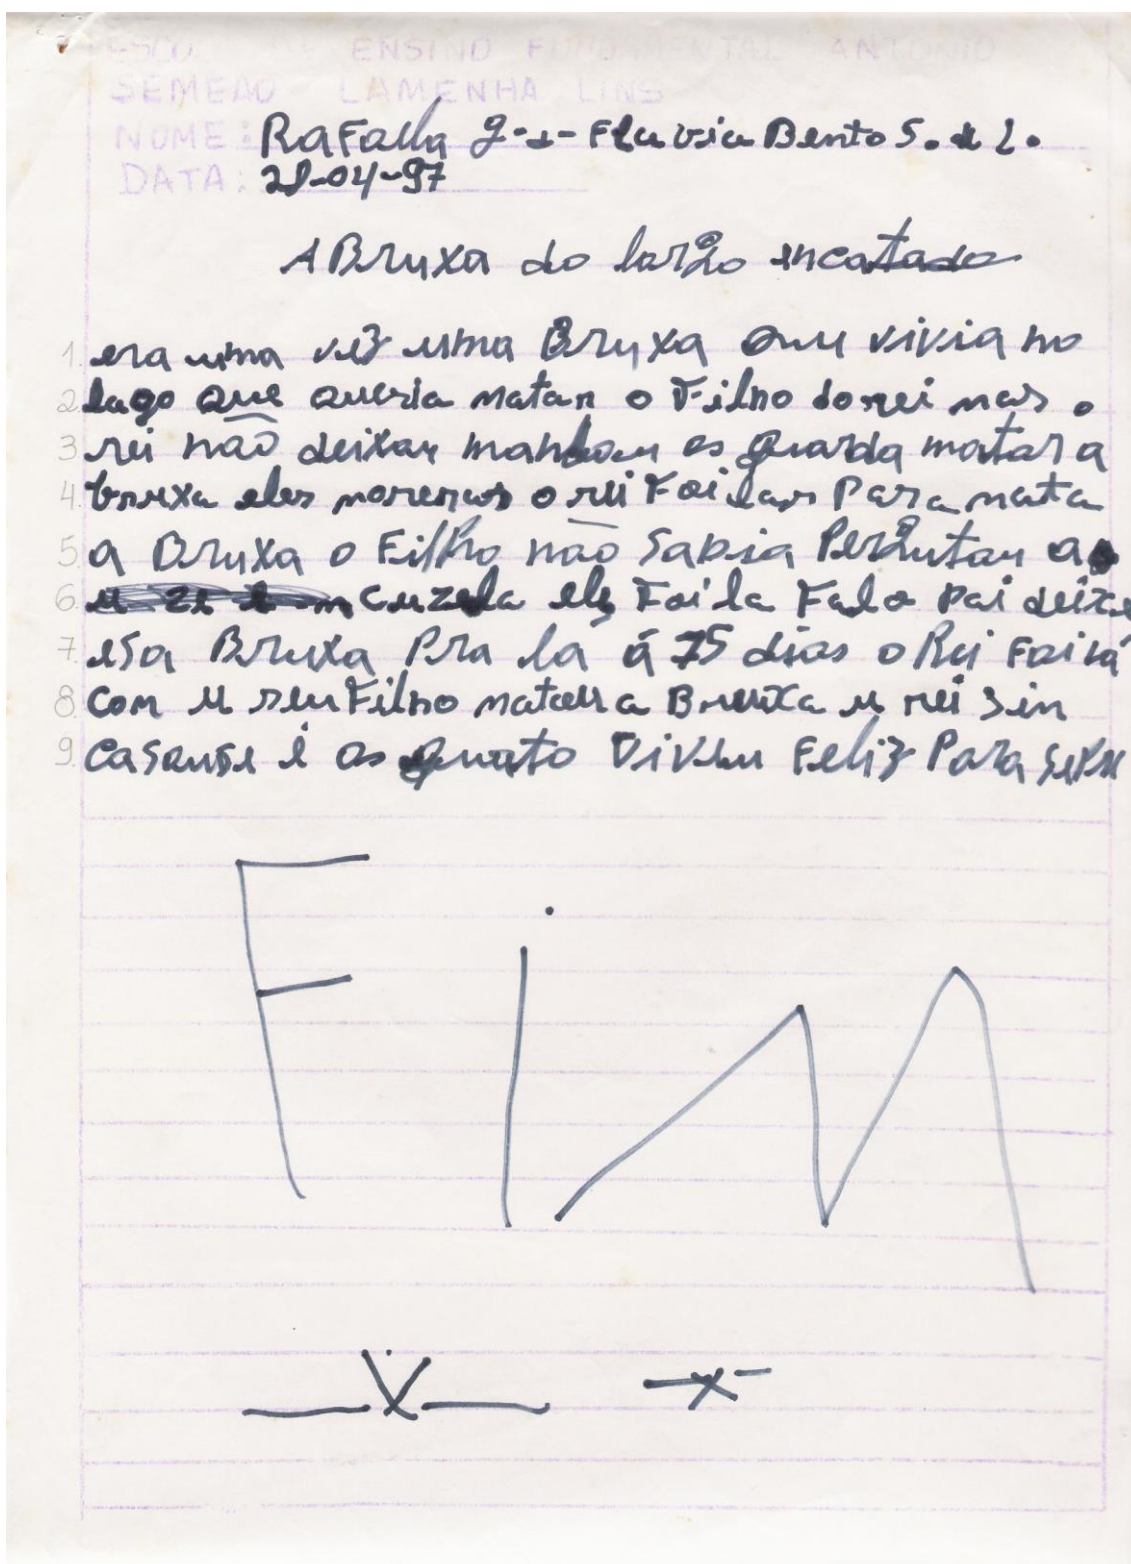 ESCO ENSINO FUNDAMENTAL ANTONIO
SEMEAO LAMENHA LINS
NOME: RaFalla e Flavia Bento S. de L.
DATA: 28-04-97
A Bruxa do largo incatado
1. era uma vez uma Bruxa que vivia no
2. lago que queria matar o Filho do rei mas o
3. rei não deixau mandou os guarda matar a
4. bruxa eles moreram o rei Foi la Para mata
5. a Bruxa o Filho não Sabia Pergutau a
6. ele Foi la Falo Pai deixe
7. esa Bruxa Pra la á 75 dias o Rei Foi lá
8. Con u seu Filho matou a Bruxa u rei Sin
9. Casouse é os quato Viveu Feliz Para
FiM
X X